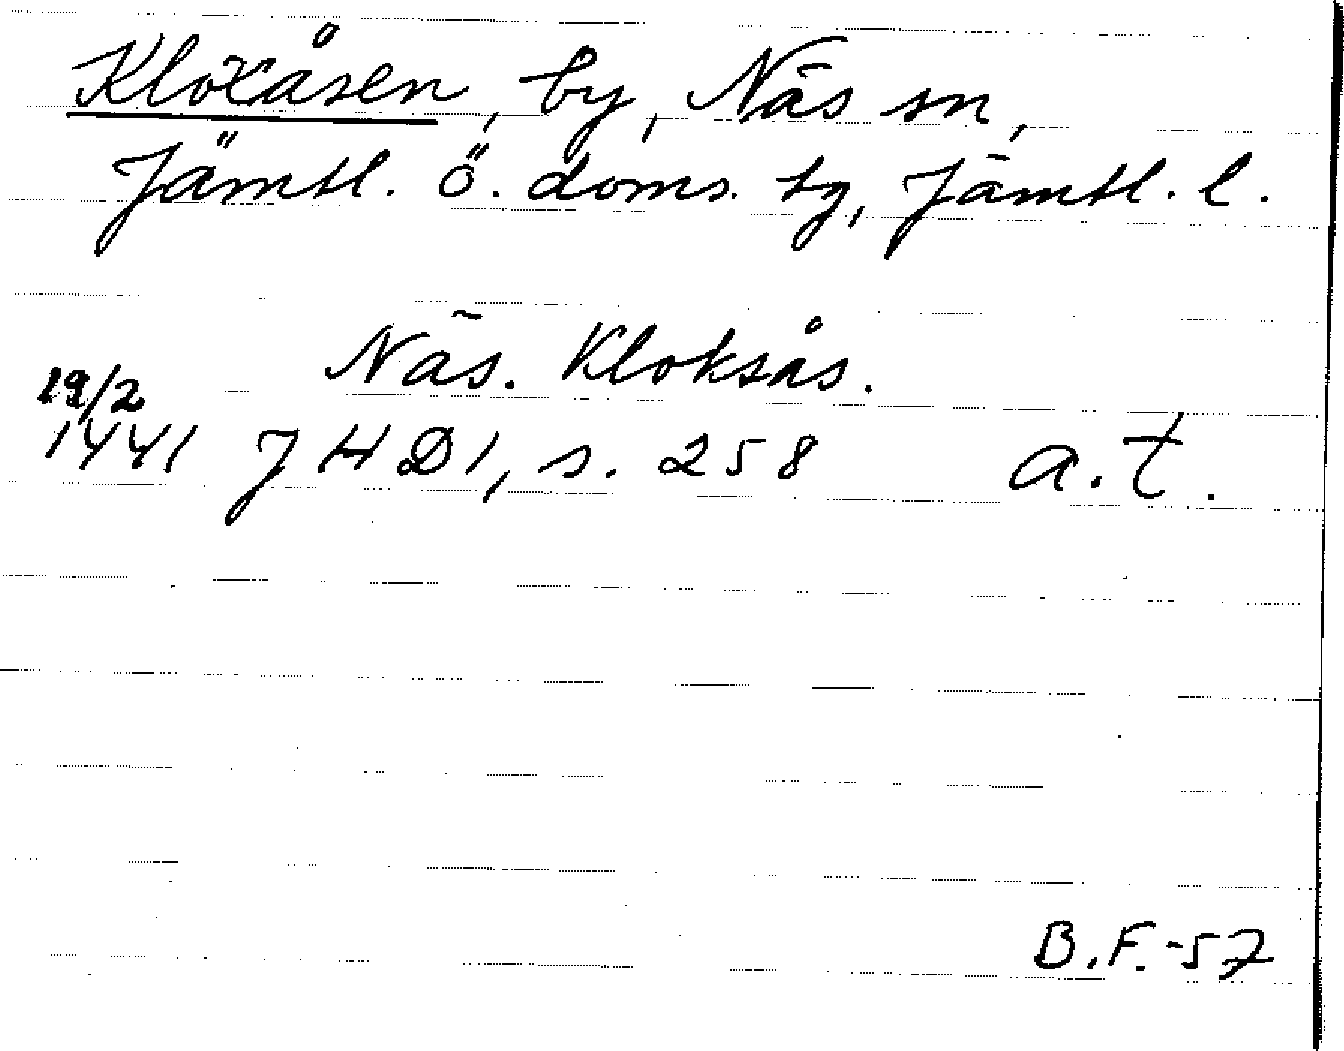 Kloxåsen, by, Näs sn,
Jämtl. ö. doms. tg, Jämtl. l.
Näs. Kloksås.
19/2
1441 JHD1, s. 258 a.t.
B.F.-57